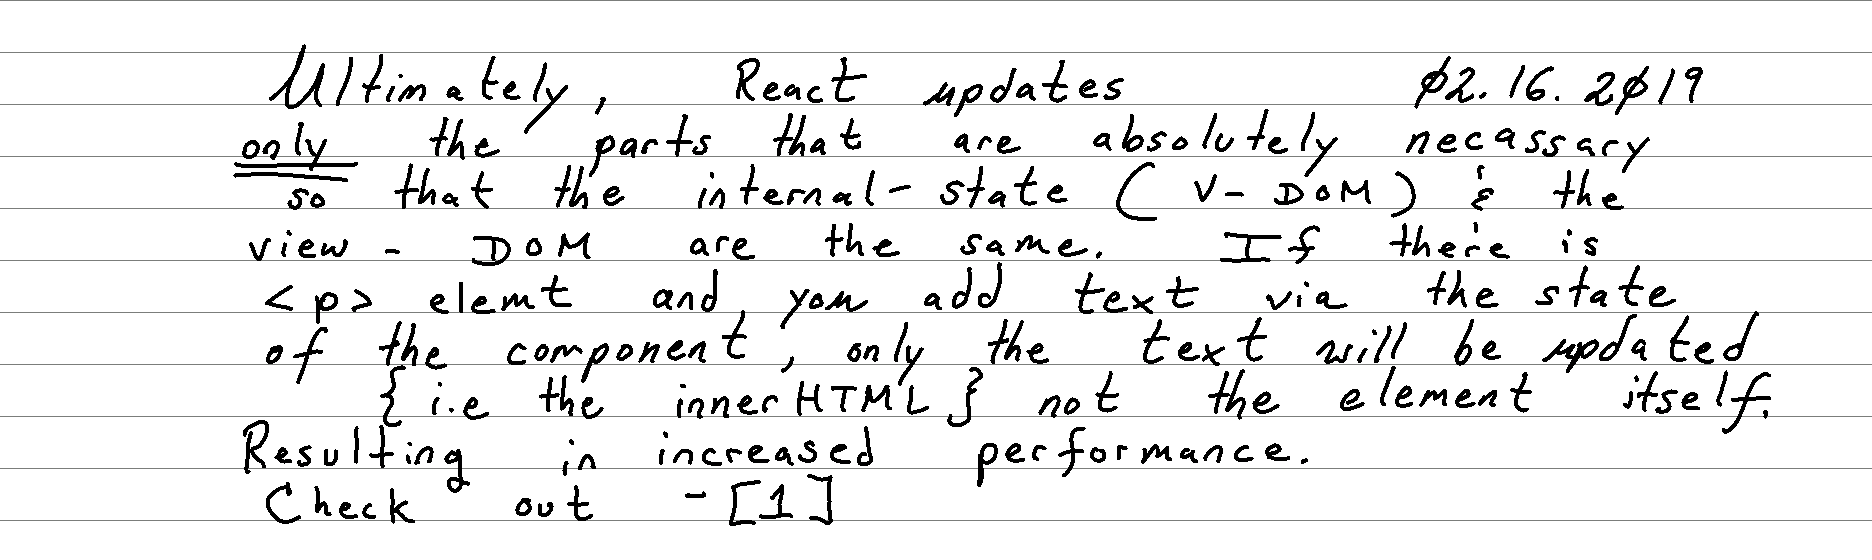 Ultimately, React updates 02.16.2019
only the parts that are absolutely necassary
so that the internal-state (V-DOM) & the
view - DOM are the same. If there is
<p> elemt and you add text via the state
of the component, only the text will be updated
{i.e the innerHTML} not the element itself.
Resulting in increased performance.
Check out -[1]